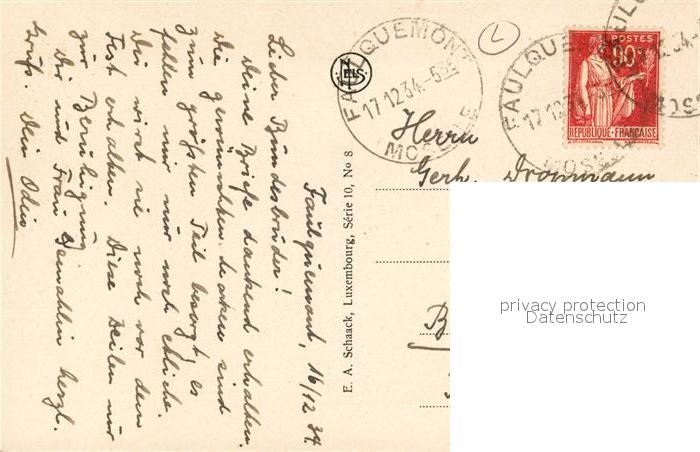 Faulquemont, 16/12 34.
Lieber Bundesbruder!
Deine Briefe dankend erhalten.
Die gewünschten Marken sind
zum größten Teil besorgt, es
fehlen mir nur noch etliche.
Du wirst sie noch vor dem
Fest erhalten. Diese Zeilen nur
zur Beruhigung.
Dir und Frau Gemahlin herzl.
Gruß. Dein
E. A. Schaack, Luxembourg, Série 10, No 8
FAULQUEMONT
17.12.34
MOSELLE
FAULQUEMONT
MOSELLE
POSTES
90c
REPUBLIQUE-FRANÇAISE
Herrn
Gerh. Drommann
privacy protection
Datenschutz